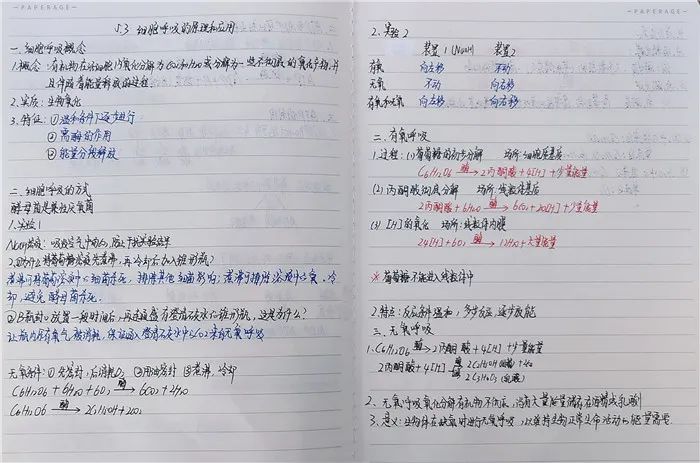 PAPERAGE
5.3 细胞呼吸的原理和应用
一. 细胞呼吸概念
1.概念:有机物在细胞内氧化分解为CO2和H2O或分解为一些不彻底的氧化产物,并
且伴随着能量释放的过程.
2.实质:生物氧化
3.特征:①温和条件下逐步进行
②需酶的作用
③能量分段释放
二. 细胞呼吸的方式
酵母菌是兼性厌氧菌
1.实验1
NaOH浓度:吸收空气中的CO2,防止干扰实验效率
2.①为什么将葡萄糖溶液先煮沸,再冷却后加入锥形瓶?
煮沸可将葡萄糖溶液中的细菌杀死,排除其他细菌影响;煮沸可排除溶液中的氧、冷
却,避免酵母菌杀死.
②B瓶封口放置一段时间后,再连通盛有澄清石灰水的锥形瓶,这是为什么?
让瓶内原有氧气被消耗,保证通入澄清石灰水中的CO2来自无氧呼吸
无氧条件:①先密封,后消耗O2 ②用油密封 ③煮沸,冷却
C6H12O6+6H2O+6O2 酶→ 6CO2+12H2O
C6H12O6 酶→ 2C2H5OH+2CO2
PAPERAGE
2.实验2
装置1(NaOH) 装置2
有氧 向左移 不动
无氧 不动 向右移
有氧和无氧 向左移 向右移
二、有氧呼吸
1.过程:(1)葡萄糖的初步分解 场所:细胞质基质
C6H12O6 酶→ 2丙酮酸+4[H]+少量能量
(2)丙酮酸彻底分解 场所:线粒体基质
2丙酮酸+6H2O 酶→ 6CO2+20[H]+少量能量
(3) [H]的氧化 场所:线粒体内膜
24[H]+6O2 酶→ 12H2O+大量能量
※葡萄糖不能进入线粒体中
2.特点:反应条件温和,多步反应,逐步放能
三、无氧呼吸
1.C6H12O6 酶→ 2丙酮酸+4[H]+少量能量
2丙酮酸+4[H] 酶→ 2C2H5OH(酒精)+2CO2
酶→ 2C3H6O3(乳酸)
2、无氧呼吸氧化分解有机物不彻底,尚有大量能量储存在酒精或乳酸中
3.意义:生物体在缺氧时进行无氧呼吸,以维持生物正常生命活动的能量需要